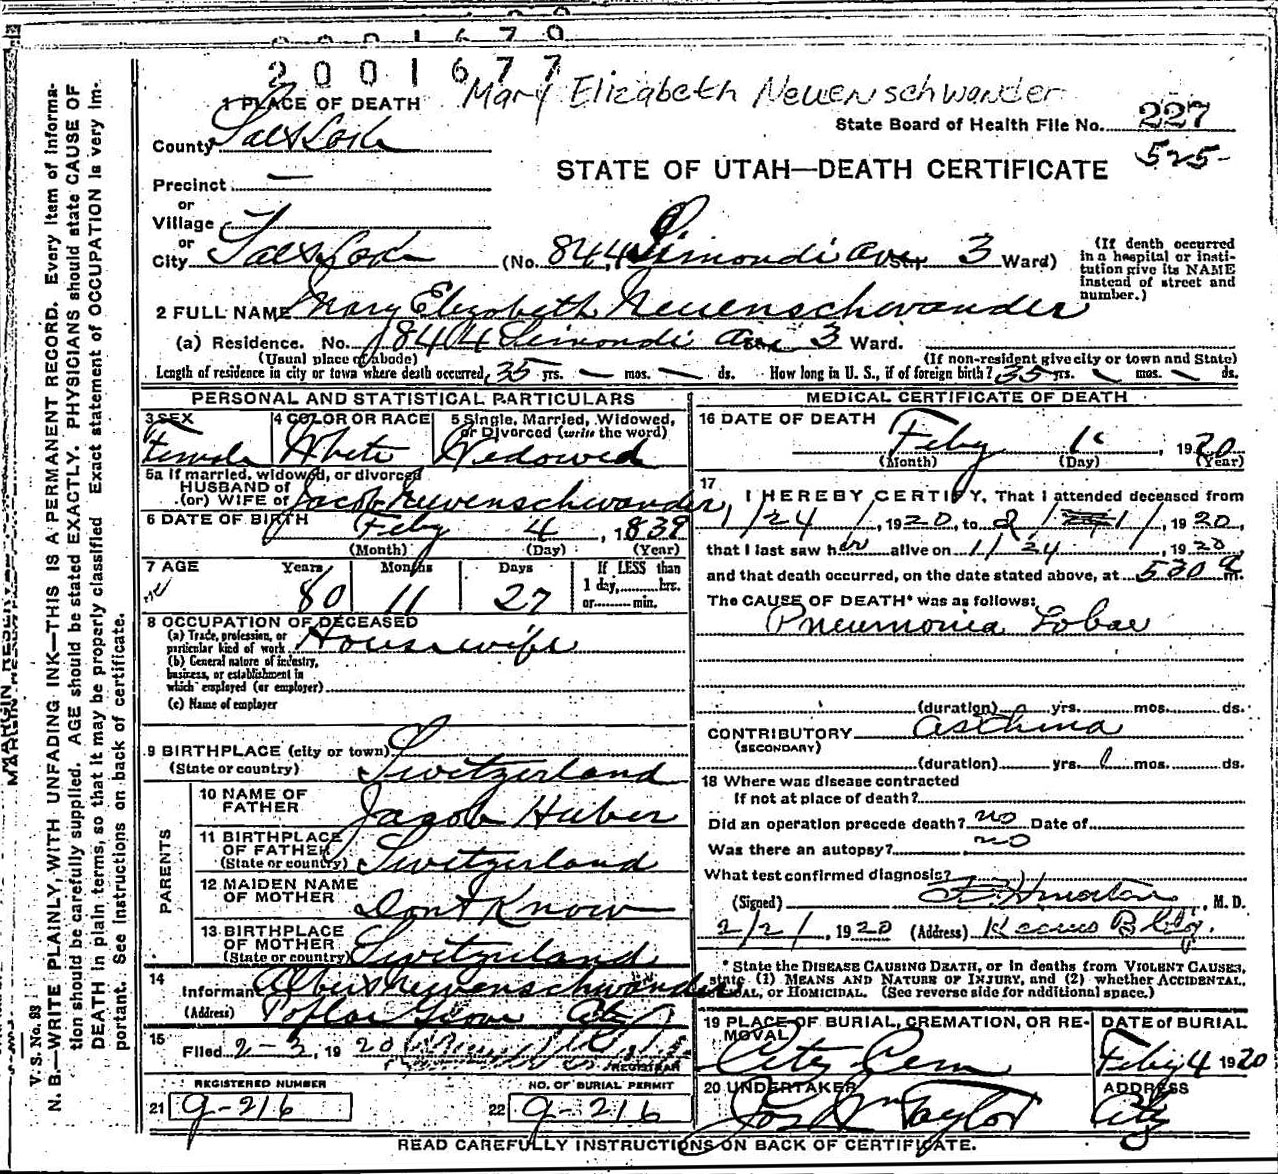 2001677
Mary Elizabeth Neuenschwander
1 PLACE OF DEATH
State Board of Health File No. 227
525
County Salt Lake
STATE OF UTAH—DEATH CERTIFICATE
Precinct —
or
Village
or
City Salt Lake (No. 844 Simondi Ave St., 3 Ward)
(If death occurred in a hospital or institution give its NAME instead of street and number.)
2 FULL NAME Mary Elizabeth Neuenschwander
(a) Residence. No. 844 Simondi Ave 3 Ward.
(Usual place of abode) (If non-resident give city or town and State)
Length of residence in city or town where death occurred, 35 yrs. — mos. — ds. How long in U. S., if of foreign birth? 35 yrs. — mos. — ds.
PERSONAL AND STATISTICAL PARTICULARS
3 SEX Female
4 COLOR OR RACE White
5 Single, Married, Widowed, or Divorced (write the word) Widowed
5a If married, widowed, or divorced
HUSBAND of
(or) WIFE of Jacob Neuenschwander
6 DATE OF BIRTH Feby 4, 1839
(Month) (Day) (Year)
7 AGE Years 80 Months 11 Days 27
If LESS than 1 day, hrs. or min.
8 OCCUPATION OF DECEASED
(a) Trade, profession, or particular kind of work Housewife
(b) General nature of industry, business, or establishment in which employed (or employer)
(c) Name of employer
9 BIRTHPLACE (city or town)
(State or country) Switzerland
PARENTS
10 NAME OF FATHER Jacob Huber
11 BIRTHPLACE OF FATHER (State or country) Switzerland
12 MAIDEN NAME OF MOTHER Dont Know
13 BIRTHPLACE OF MOTHER (State or country) Switzerland
14 Informant Albert Neuenschwander
(Address) Poplar Grove City
15 Filed 2-3, 1920
REGISTRAR
REGISTERED NUMBER
21 9-216
NO. OF BURIAL PERMIT
22 9-216
MEDICAL CERTIFICATE OF DEATH
16 DATE OF DEATH Feby 1, 1920
(Month) (Day) (Year)
17 I HEREBY CERTIFY, That I attended deceased from
1/24/, 1920, to 2/1/, 1920,
that I last saw her alive on 1/24, 1920
and that death occurred, on the date stated above, at 530 a m.
The CAUSE OF DEATH* was as follows:
Pneumonia Lobar
(duration) yrs. mos. ds.
CONTRIBUTORY Asthma
(SECONDARY)
(duration) yrs. mos. ds.
18 Where was disease contracted
If not at place of death?
Did an operation precede death? no Date of
Was there an autopsy? no
What test confirmed diagnosis?
(Signed) , M. D.
2/2/, 1920 (Address) Kearns Bldg.
*State the DISEASE CAUSING DEATH, or in deaths from VIOLENT CAUSES, state (1) MEANS AND NATURE OF INJURY, and (2) whether ACCIDENTAL, SUICIDAL, or HOMICIDAL. (See reverse side for additional space.)
19 PLACE OF BURIAL, CREMATION, OR REMOVAL City Cem
DATE of BURIAL Feby 4 1920
20 UNDERTAKER Jos Wm Taylor
ADDRESS City
READ CAREFULLY INSTRUCTIONS ON BACK OF CERTIFICATE.
V. S. No. 83
N. B.—WRITE PLAINLY, WITH UNFADING INK—THIS IS A PERMANENT RECORD. Every item of information should be carefully supplied. AGE should be stated EXACTLY. PHYSICIANS should state CAUSE OF DEATH in plain terms, so that it may be properly classified. Exact statement of OCCUPATION is very important. See instructions on back of certificate.